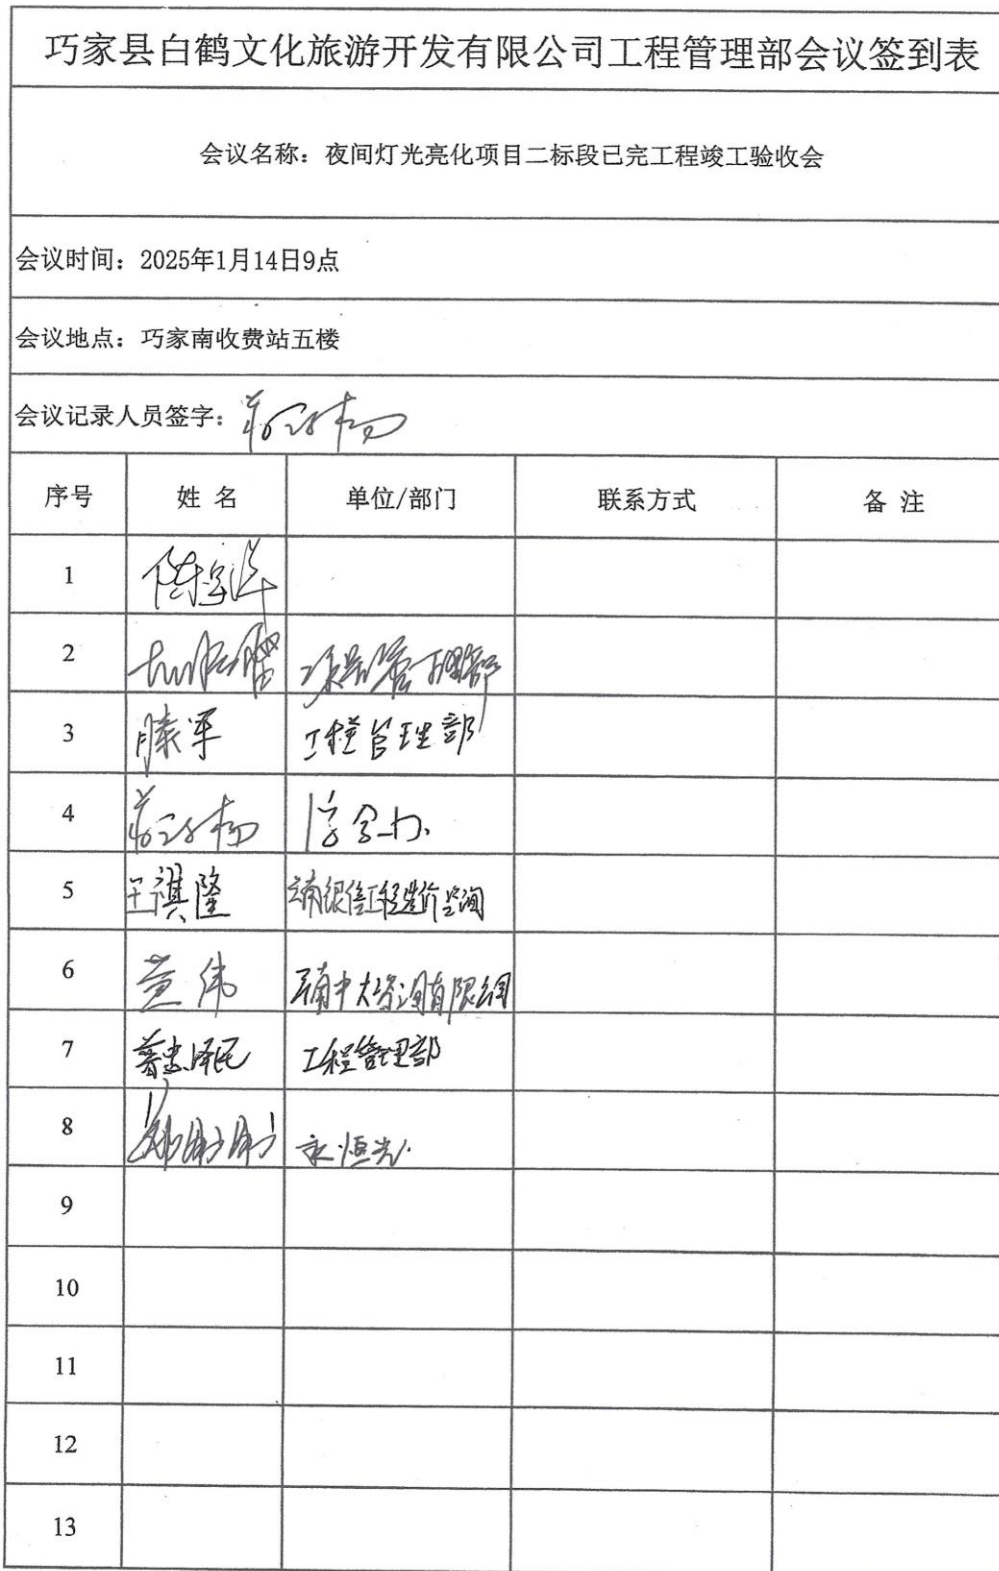 巧家县白鹤文化旅游开发有限公司工程管理部会议签到表
会议名称：夜间灯光亮化项目二标段已完工程竣工验收会
会议时间：2025年1月14日9点
会议地点：巧家南收费站五楼
会议记录人员签字：
序号 姓 名 单位/部门 联系方式 备 注
1
2 项目管理部
3 滕军 工程管理部
4
5 王淇隆
6 黄伟
7 工程管理部
8 永恒光
9
10
11
12
13